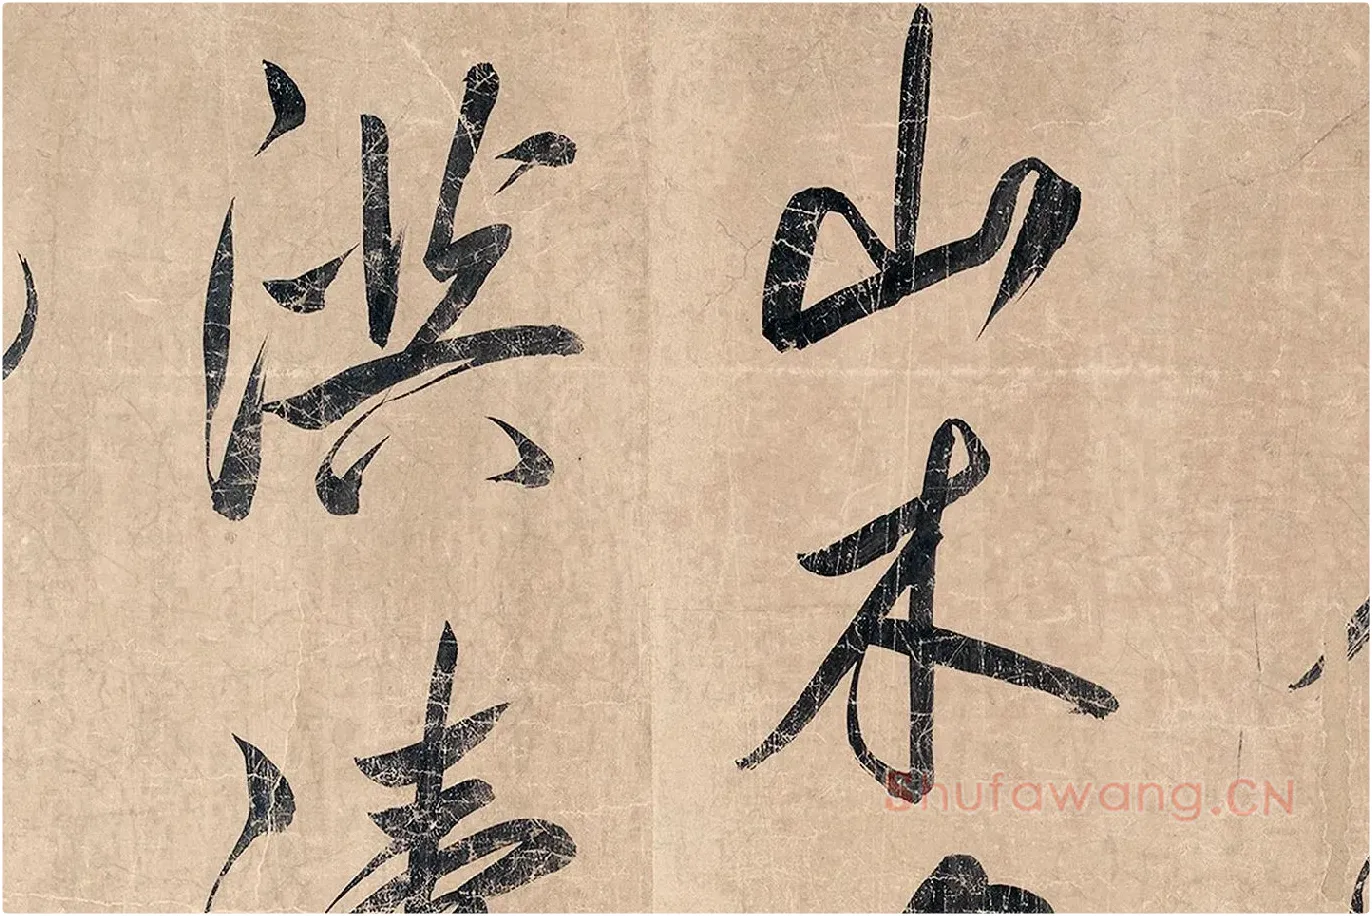 山木
洪濤
Shufawang.CN